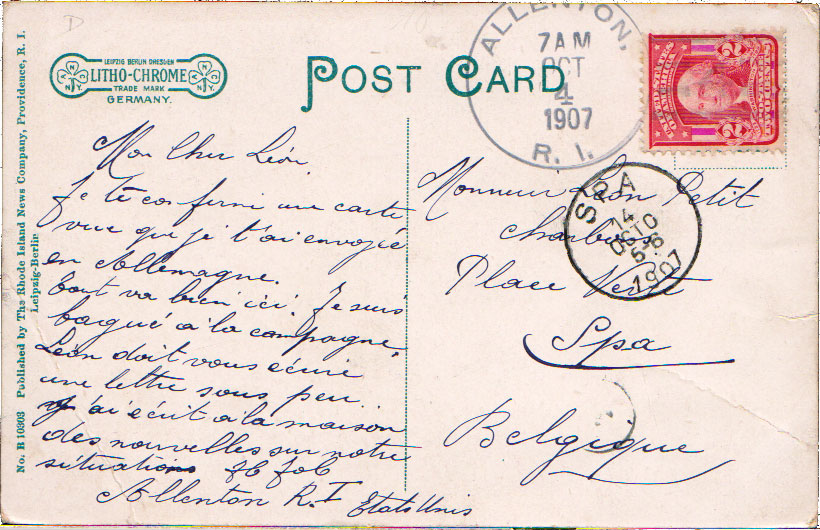 No. B 10303 Published by The Rhode Island News Company, Providence, R. I.
Leipzig-Berlin
LEIPZIG BERLIN DRESDEN
LITHO-CHROME
TRADE MARK
GERMANY.
POST CARD
ALLENTON,
7 AM
OCT
4
1907
R. I.
2 2
Mon Cher Léon
Je te confirme une carte
vue que je t'ai envoyée
en Allemagne.
Tout va bien ici. Je suis
à la campagne
Léon doit vous écrire
une lettre sous peu.
J'ai écrit à la maison
des nouvelles sur notre
situation
Allenton R.I Etats Unis
Monsieur Léon Petit
Place Verte
Spa
Belgique
SPA
14
OCTO
5-6
1907